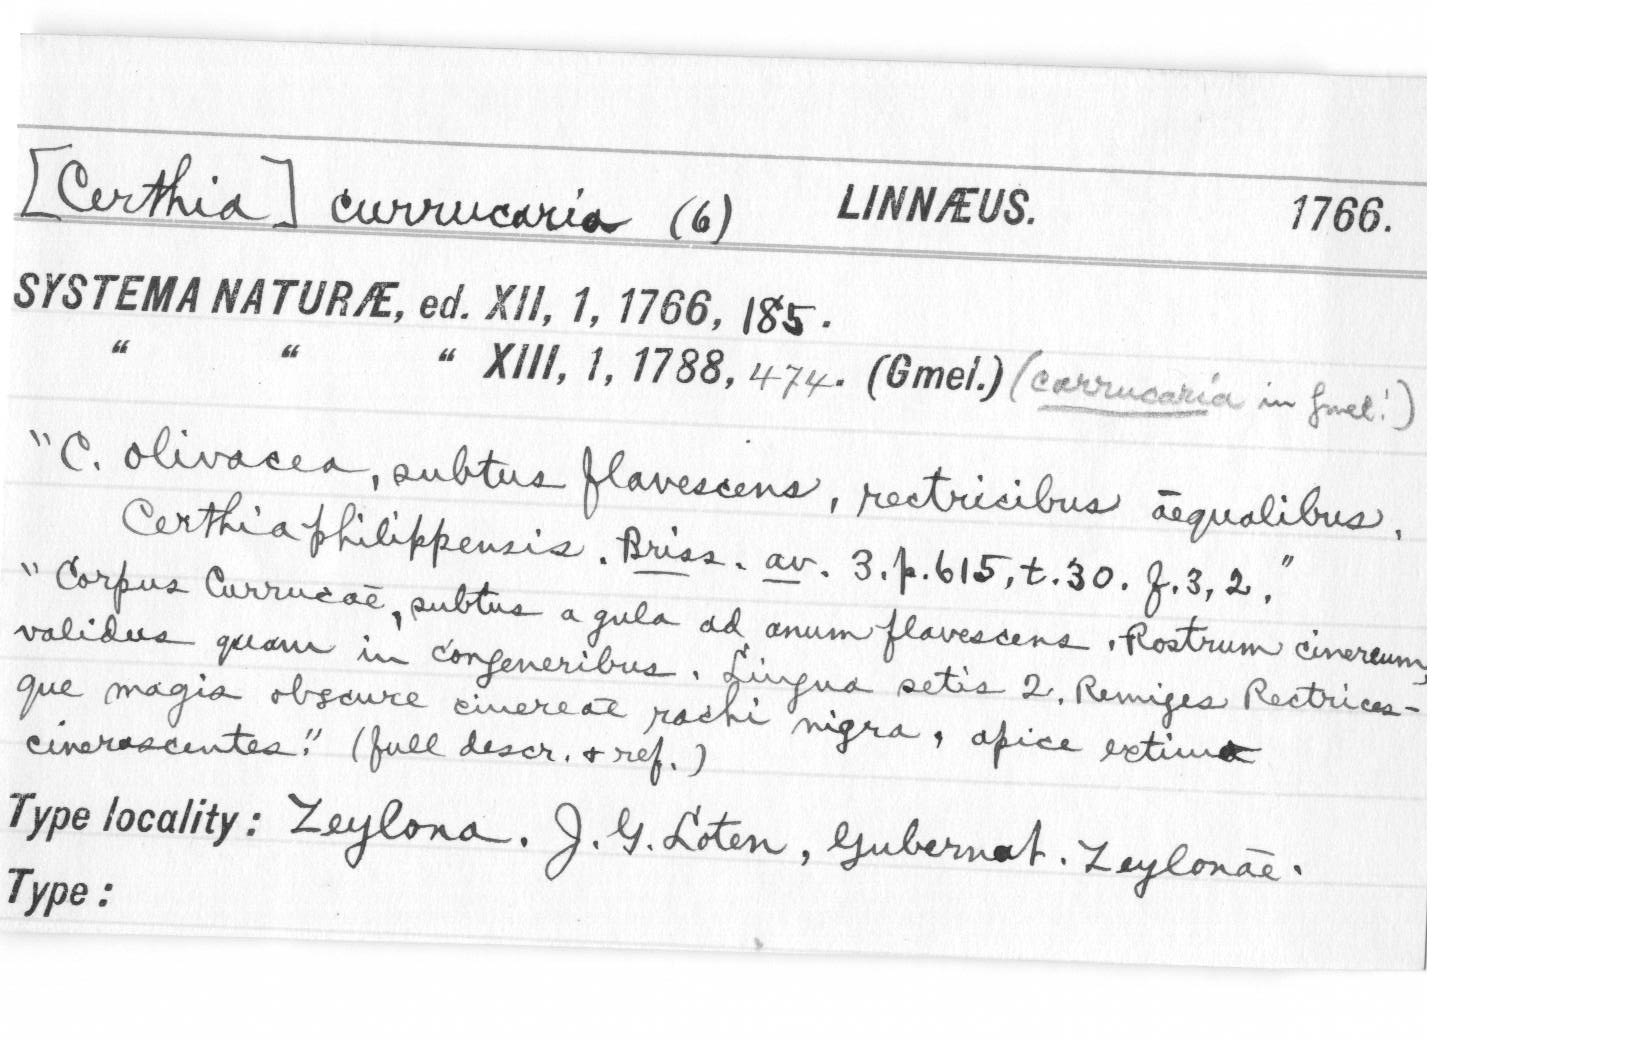 [Certhia] currucaria (6) LINNÆUS. 1766.
SYSTEMA NATURÆ, ed. XII, 1, 1766, 185.
“ “ “ XIII, 1, 1788, 474. (Gmel.) (carrucaria in Gmel!)
"C. olivacea, subtus flavescens, rectricibus aequalibus.
Certhia philippensis. Briss. av. 3. p. 615, t. 30. f. 3, 2."
"Corpus Currucae, subtus a gula ad anum flavescens. Rostrum cinereum,
validus quam in congeneribus. Lingua setis 2. Remiges Rectrices-
que magis obscure cinereae rachi nigra, apice extima
cinerascentes." (full descr. & ref.)
Type locality: Zeylona. J. G. Loten, Gubernat. Zeylonae.
Type: